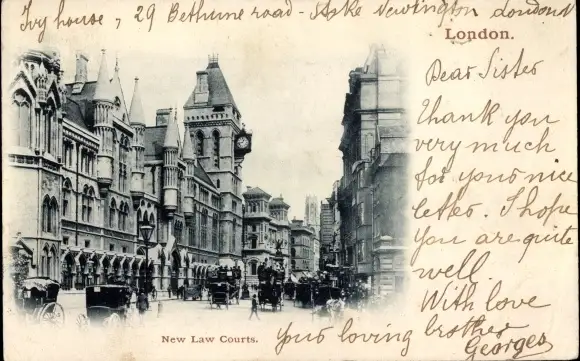 Ivy house, 29 Bethune road - Stoke Newington London
London.
Dear Sister
Thank you
very much
for your nice
letter. I hope
you are quite
well.
With love
Your loving brother
Georges
New Law Courts.